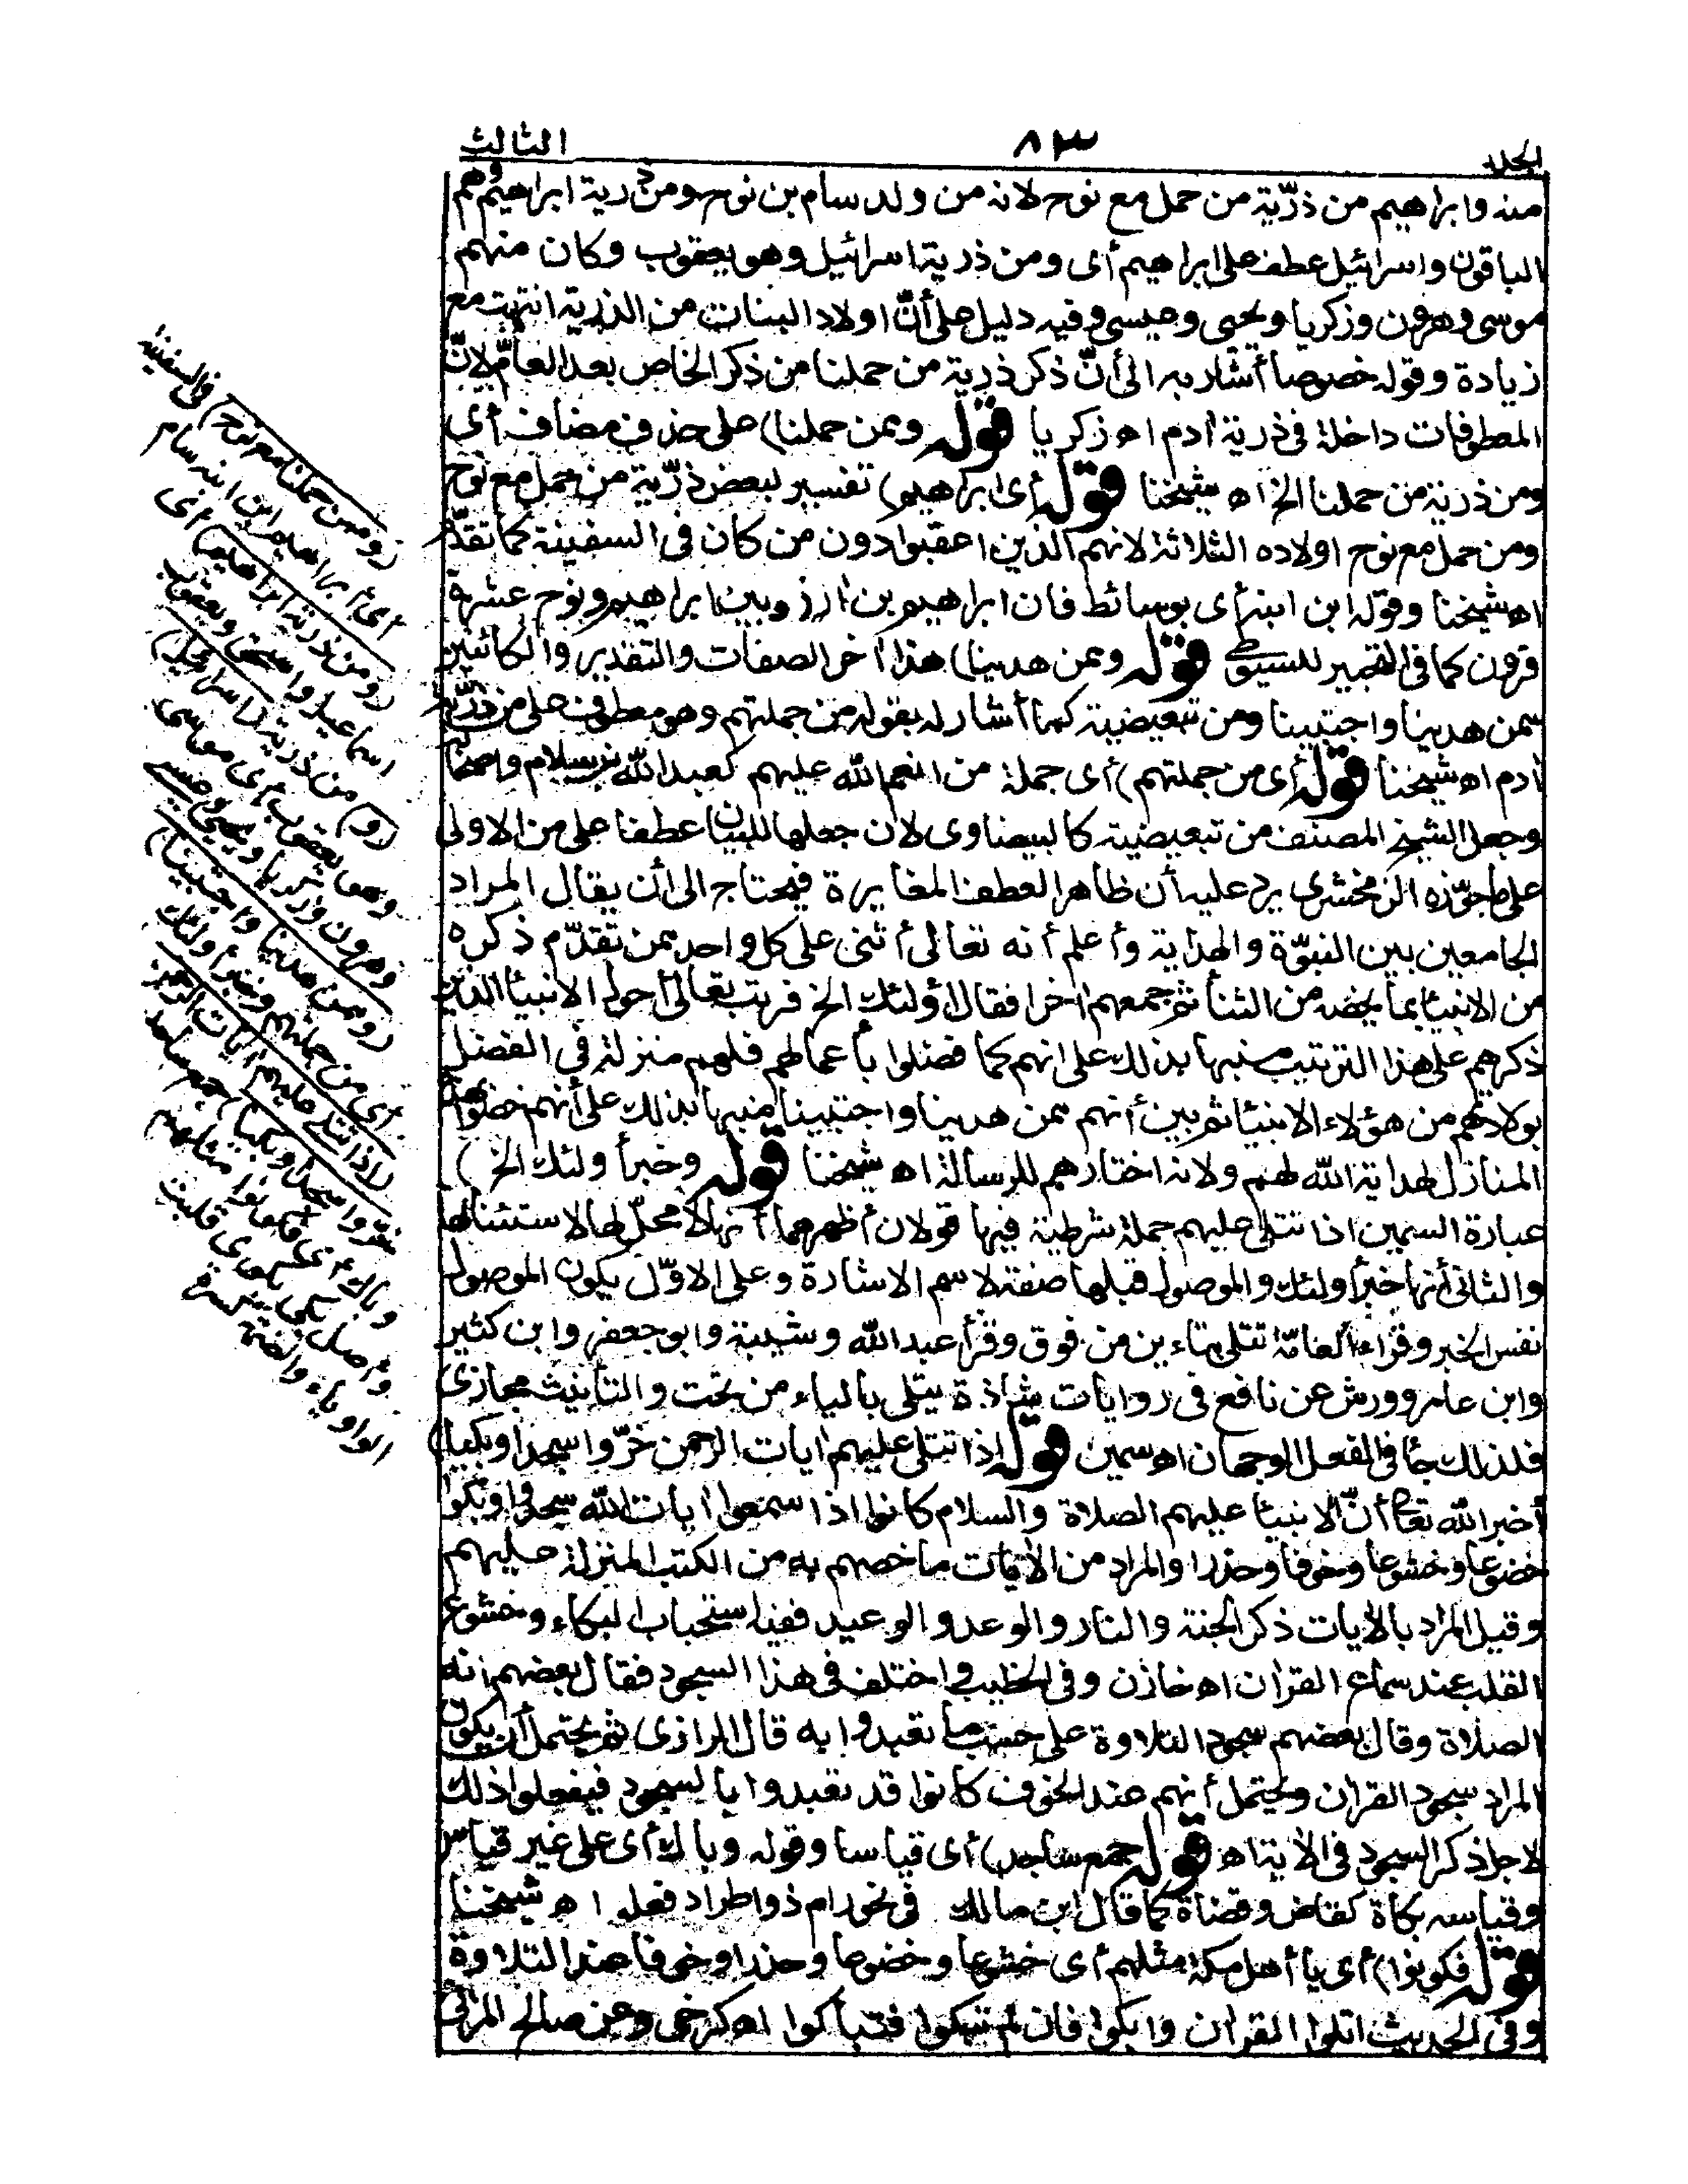 الجلد ٨٣ الثالث
منه وابراهيم من ذرّيّة من حمل مع نوح لانه من ولد سام بن نوح ومن ذرية ابراهيم وهم
الباقون واسرائيل عطف على ابراهيم أى ومن ذرية اسرائيل وهو يعقوب وكان منهم
موسى وهرون وزكريا ويحيى وعيسى وفيه دليل على أنّ اولاد البنات من الذرية انتهت مع
زيادة وقوله خصوصا أشار به الى أنّ ذكر ذرية من حملنا من ذكر الخاص بعد العامّ لانّ
المعطوفات داخلة فى ذرية ادم اه زكريا قوله وممن حملنا) على حذف مضاف أى
ومن ذرية من حملنا الخ اه شيخنا قوله أى ابراهيم) تفسير لبعض ذرّية من حمل مع نوح
ومن حمل مع نوح اولاده الثلاثة لانهم الذين اعقبوا دون من كان فى السفينة كما تقدّم
اه شيخنا وقوله ابن ابنه أى بوسائط فان ابراهيم بن ازر وبين ابراهيم ونوح عشرة
قرون كما فى التحبير للسيوطى قوله وممن هدينا) هذا آخر الصفات والتقدير والكائنين
ممن هدينا واجتبينا ومن تبعيضية كما أشار له بقوله من جملتهم وهو معطوف على من ذرّيّة
ادم اه شيخنا قوله أى من جملتهم) أى جملة من انعم الله عليهم كعبد الله بن سلام واصحابه
وجعل الشيخ المصنف من تبعيضية كالبيضاوى لان جعلها للبيان عطفا على من الاولى
على ما جوّزه الزمخشرى يرد عليه أن ظاهر العطف المغايرة فيحتاج الى أن يقال المراد
الجامعين بين النبوّة والهداية وأعلم أنه تعالى أثنى على كل واحد ممن تقدّم ذكره
من الانبيا بما يخصه من الثنا ثم جمعهم اخرا فقال اؤلئك الخ فرتب تعالى احوال الانبيا الذين
ذكرهم على هذا الترتيب منبها بذلك على انهم كما فضلوا بأعمالهم فلهم منزلة فى الفضل
بولادتهم من هؤلاء الانبيا ثم بين أنهم ممن هدينا واجتبينا منبها بذلك على أنهم خصوا بهذه
المنازل لهداية الله لهم ولانه اختارهم للرسالة اه شيخنا قوله وخبر أولئك الخ)
عبارة السمين اذا تتلى عليهم جملة شرطية فيها قولان أظهرهما أنها لا محلّ لها لاستئنافها
والثانى أنها خبر أولئك والموصول قبلها صفة لاسم الاشارة وعلى الاوّل يكون الموصول
نفس الخبر وقراءة العامّة تتلى بتاءين من فوق وقرأ عبد الله وشيبة وابو جعفر وابن كثير
وابن عامر وورش عن نافع فى روايات شاذة يتلى بالياء من تحت والتأنيث مجازى
فلذلك جا فى الفعل الوجهان اه سمين قوله اذا تتلى عليهم ايات الرحمن خرّوا سجدا وبكيا)
أخبر الله تعالى أنّ الانبيا عليهم الصلاة والسلام كانوا اذا سمعوا ايات الله سجدوا وبكوا
خضوعا وخشوعا وخوفا وحذرا والمراد من الايات ما خصهم به من الكتب المنزلة عليهم
وقيل المراد بالايات ذكر الجنة والنار والوعد والوعيد ففيه استحباب البكاء وخشوع
القلب عند سماع القران اه خازن وفى الخطيب واختلف فى هذا السجود فقال بعضهم انه
الصلاة وقال بعضهم سجود التلاوة على حسب ما تعبدوا به قال الرازى ثم يحتمل أن يكون
المراد سجود القران ويحتمل أنهم عند الخوف كانوا قد تعبدوا بالسجود فيفعلوا ذلك
لاجل ذكر السجود فى الاية اه قوله جمع ساجد) أى قياسا وقوله وباك أى على غير قياس
وقياسه بكاة كقاض وقضاة كما قال ابن مالك فى نحو رام ذو اطراد فعله اه شيخنا
قوله فكونوا) أى يا أهل مكة مثلهم أى خشوعا وخضوعا وحذرا وخوفا عند التلاوة
وفى الحديث اتلوا القران وابكوا فان لم تبكوا فتباكوا اه كرخى وعن صالح المرّى
(وممن حملنا مع نوح) فى السفينة
أى ابراهيم ابن ابنه سام
(ومن ذرية ابراهيم) أى
اسماعيل واسحق ويعقوب
(و) من ذرية (اسرائيل)
وهو يعقوب أى موسى
وهرون وزكريا ويحيى وعيسى
(وممن هدينا واجتبينا)
أى من جملتهم وخبر أولئك
(اذا تتلى عليهم ايات الرحمن
خرّوا سجدا وبكيا) جمع ساجد
وباك أى فكونوا مثلهم
وأصل بكى بكوى قلبت
الواو ياء والضمة كسرة